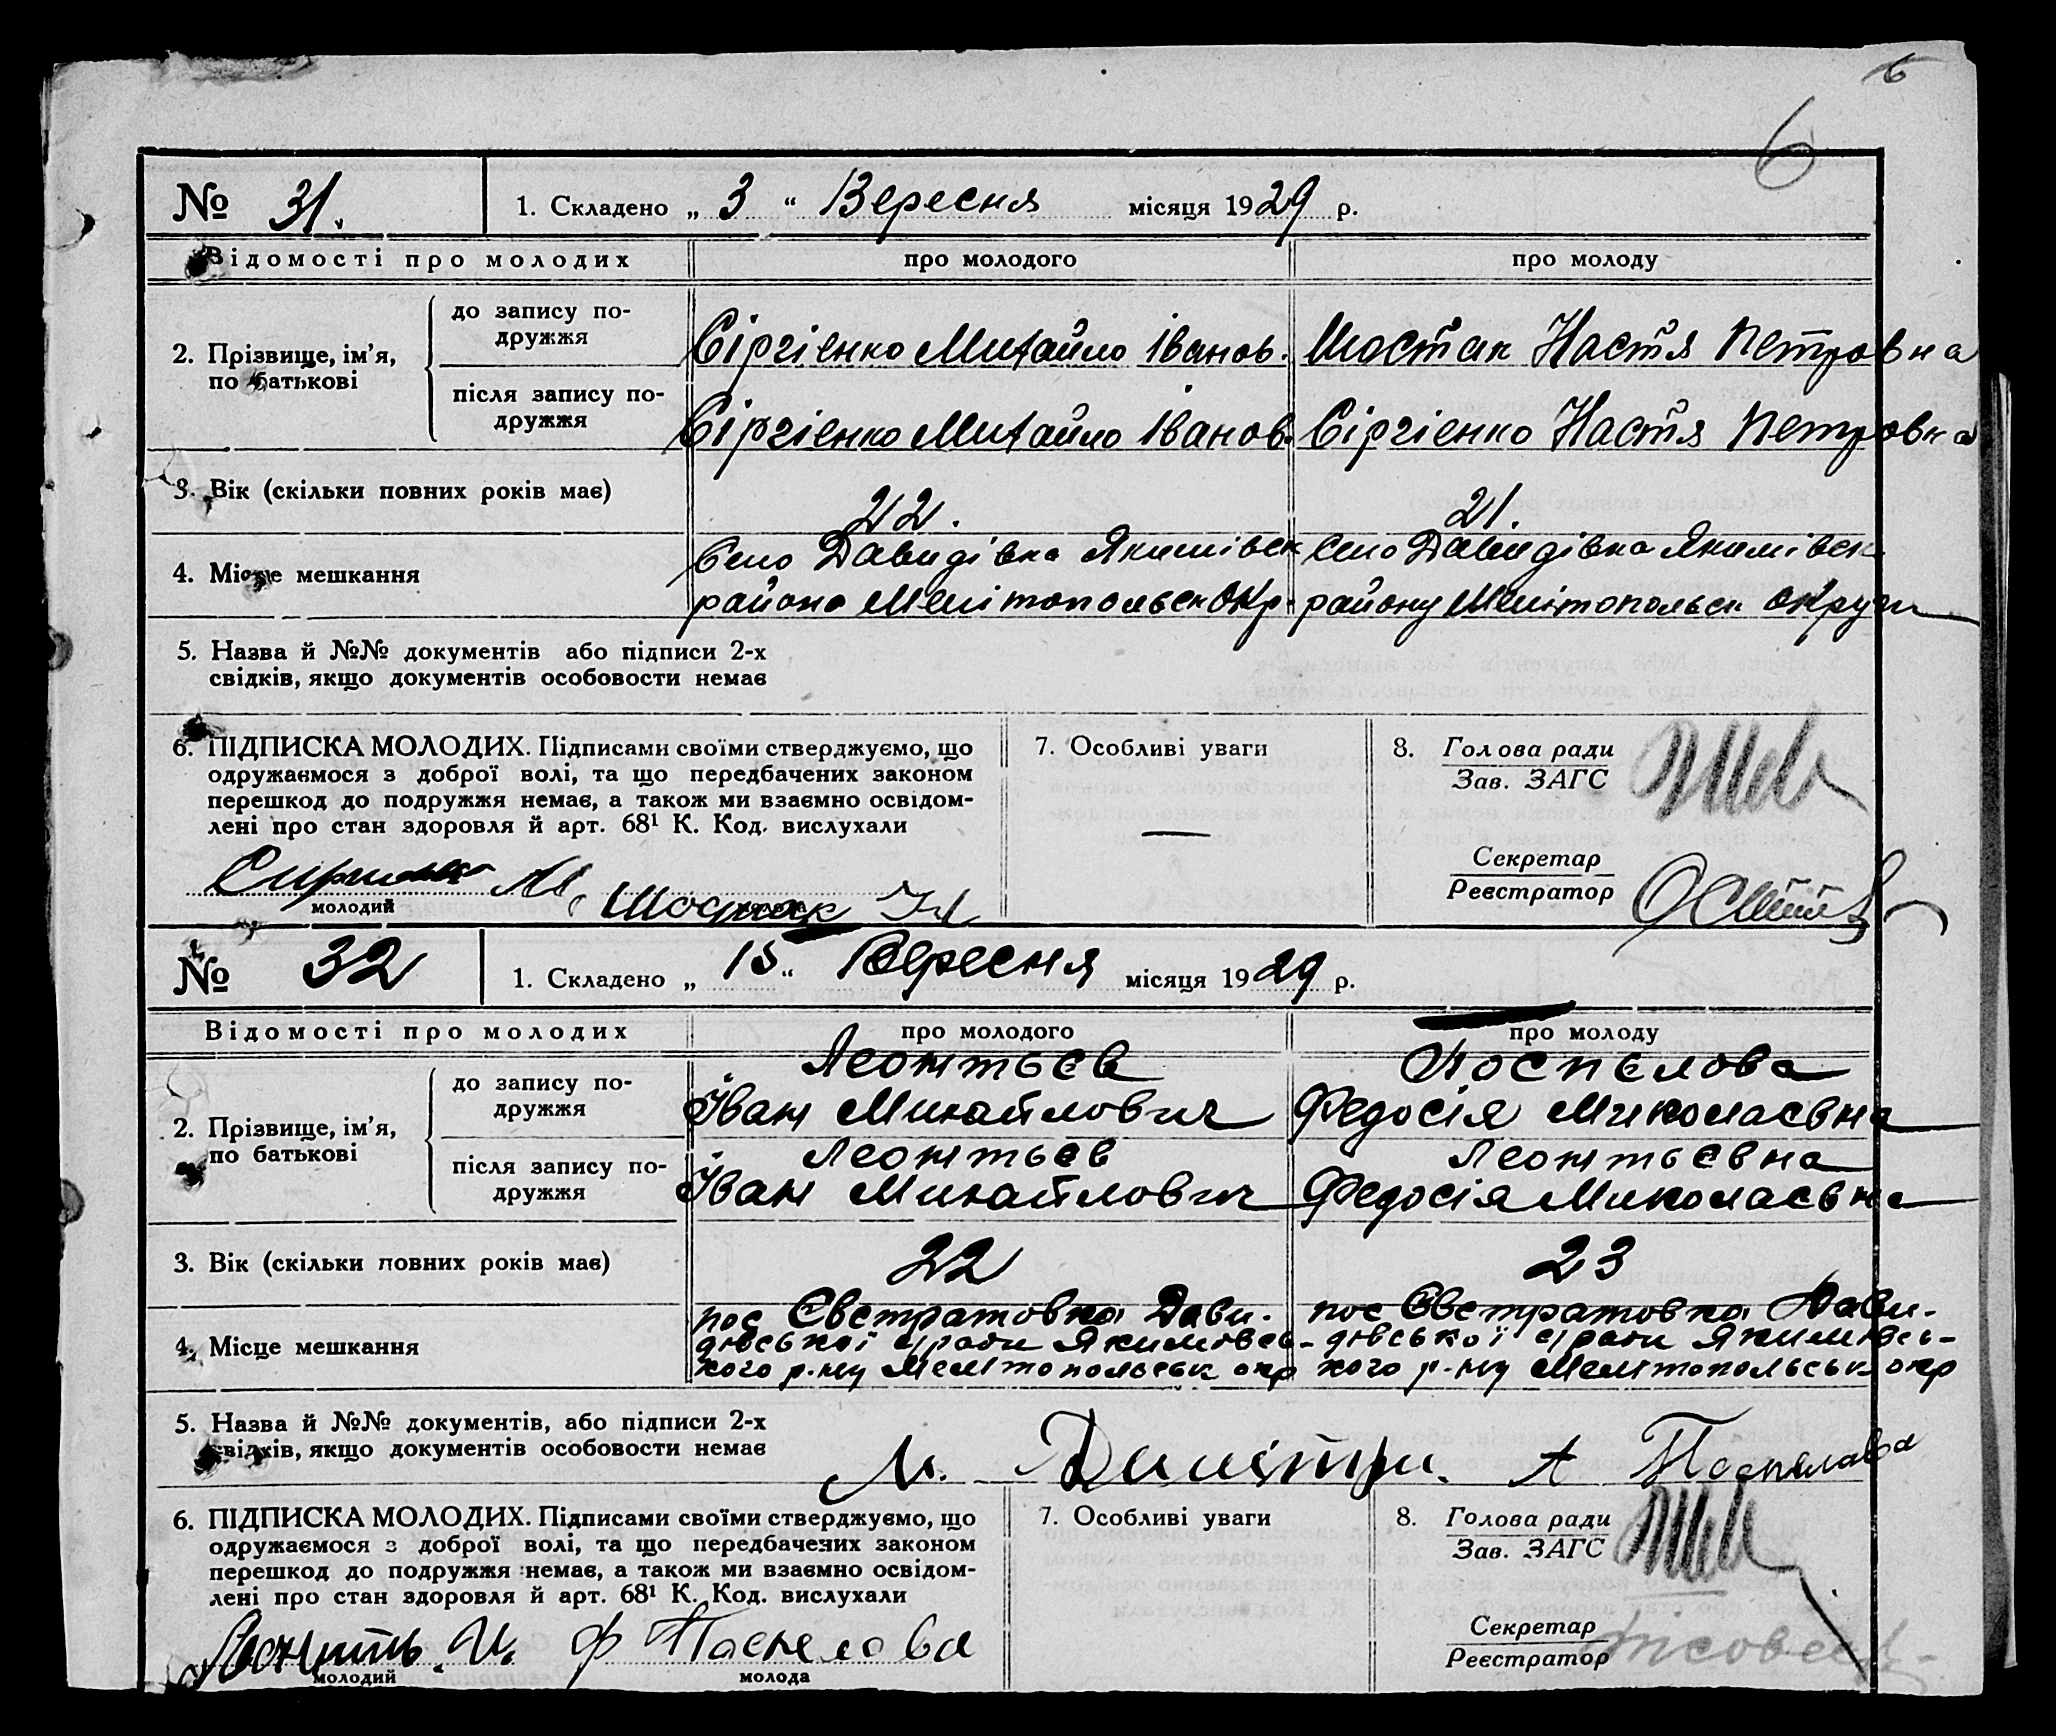 6
6
№ 31. 1. Складено „ 3 “ Вересня місяця 1929 р.
Відомості про молодих про молодого про молоду
2. Прізвище, ім’я, по батькові
до запису по-
дружжя
Сіргієнко Михайло Іванов. Шостак Настя Петровна
після запису по-
дружжя
Сіргієнко Михайло Іванов. Сіргієнко Настя Петровна
3. Вік (скільки повних років має) 22. 21.
4. Місце мешкання
Село Давидівка Якимівськ Село Давидівка Якимівськ
района Мелітопольськ Окр. району Мелітопольськ округи
5. Назва й №№ документів або підписи 2-х
свідків, якщо документів особовости немає
6. ПІДПИСКА МОЛОДИХ. Підписами своїми стверджуємо, що
одружаємося з доброї волі, та що передбачених законом
перешкод до подружжя немає, а також ми взаємно освідом-
лені про стан здоровля й арт. 68¹ К. Код. вислухали
М. Шостак Н
молодий молода
7. Особливі уваги
—
8. Голова ради
Зав. ЗАГС
Секретар
Реєстратор
№ 32 1. Складено „ 15 “ Вересня місяця 1929 р.
Відомості про молодих про молодого про молоду
2. Прізвище, ім’я, по батькові
до запису по-
дружжя
Леонтьєв Поспєлова
Іван Михайлович Федосія Миколаєвна
після запису по-
дружжя
Леонтьєв Леонтьєвна
Іван Михайлович Федосія Миколаєвна
3. Вік (скільки повних років має) 22 23
4. Місце мешкання
пос Євстратовка Дави- пос Євстратовка Дави-
дівської с/ради Якимівсь- дівської с/ради Якимівсь-
кого р-ну Мелітопольськ окр кого р-ну Мелітопольськ окр
5. Назва й №№ документів, або підписи 2-х
свідків, якщо документів особовости немає
А Поспелава
6. ПІДПИСКА МОЛОДИХ. Підписами своїми стверджуємо, що
одружаємося з доброї волі, та що передбачених законом
перешкод до подружжя немає, а також ми взаємно освідом-
лені про стан здоровля й арт. 68¹ К. Код. вислухали
И. Ф Паспелова
молодий молода
7. Особливі уваги
8. Голова ради
Зав. ЗАГС
Секретар
Реєстратор